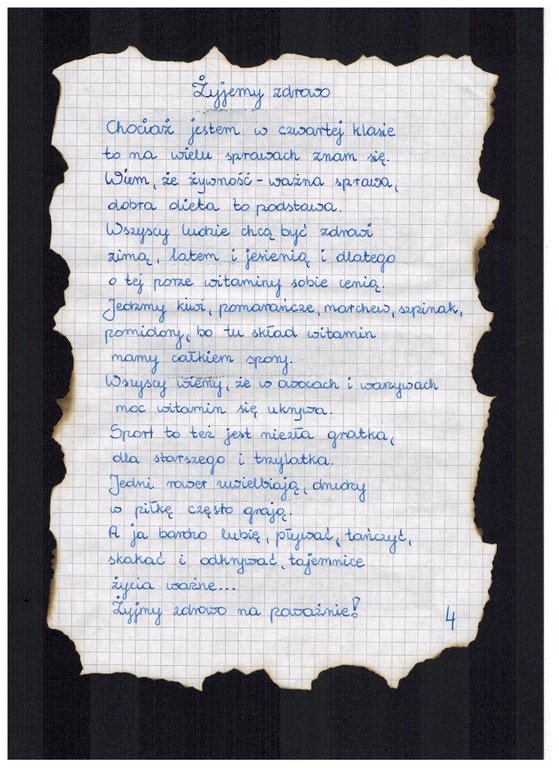 Żyjemy zdrowo
Chociaż jestem w czwartej klasie
to na wielu sprawach znam się.
Wiem, że żywność - ważna sprawa,
dobra dieta to podstawa.
Wszyscy ludzie chcą być zdrowi
zimą, latem i jesienią i dlatego
o tej porze witaminy sobie cenią.
Jedzmy kiwi, pomarańcze, marchew, szpinak,
pomidory, bo tu skład witamin
mamy całkiem spory.
Wszyscy wiemy, że w owocach i warzywach
moc witamin się ukrywa.
Sport to też jest niezła gratka,
dla starszego i trzylatka.
Jedni rower uwielbiają, drudzy
w piłkę często grają.
A ja bardzo lubię, pływać, tańczyć,
skakać i odkrywać, tajemnice
życia ważne...
Żyjmy zdrowo na poważnie!
4